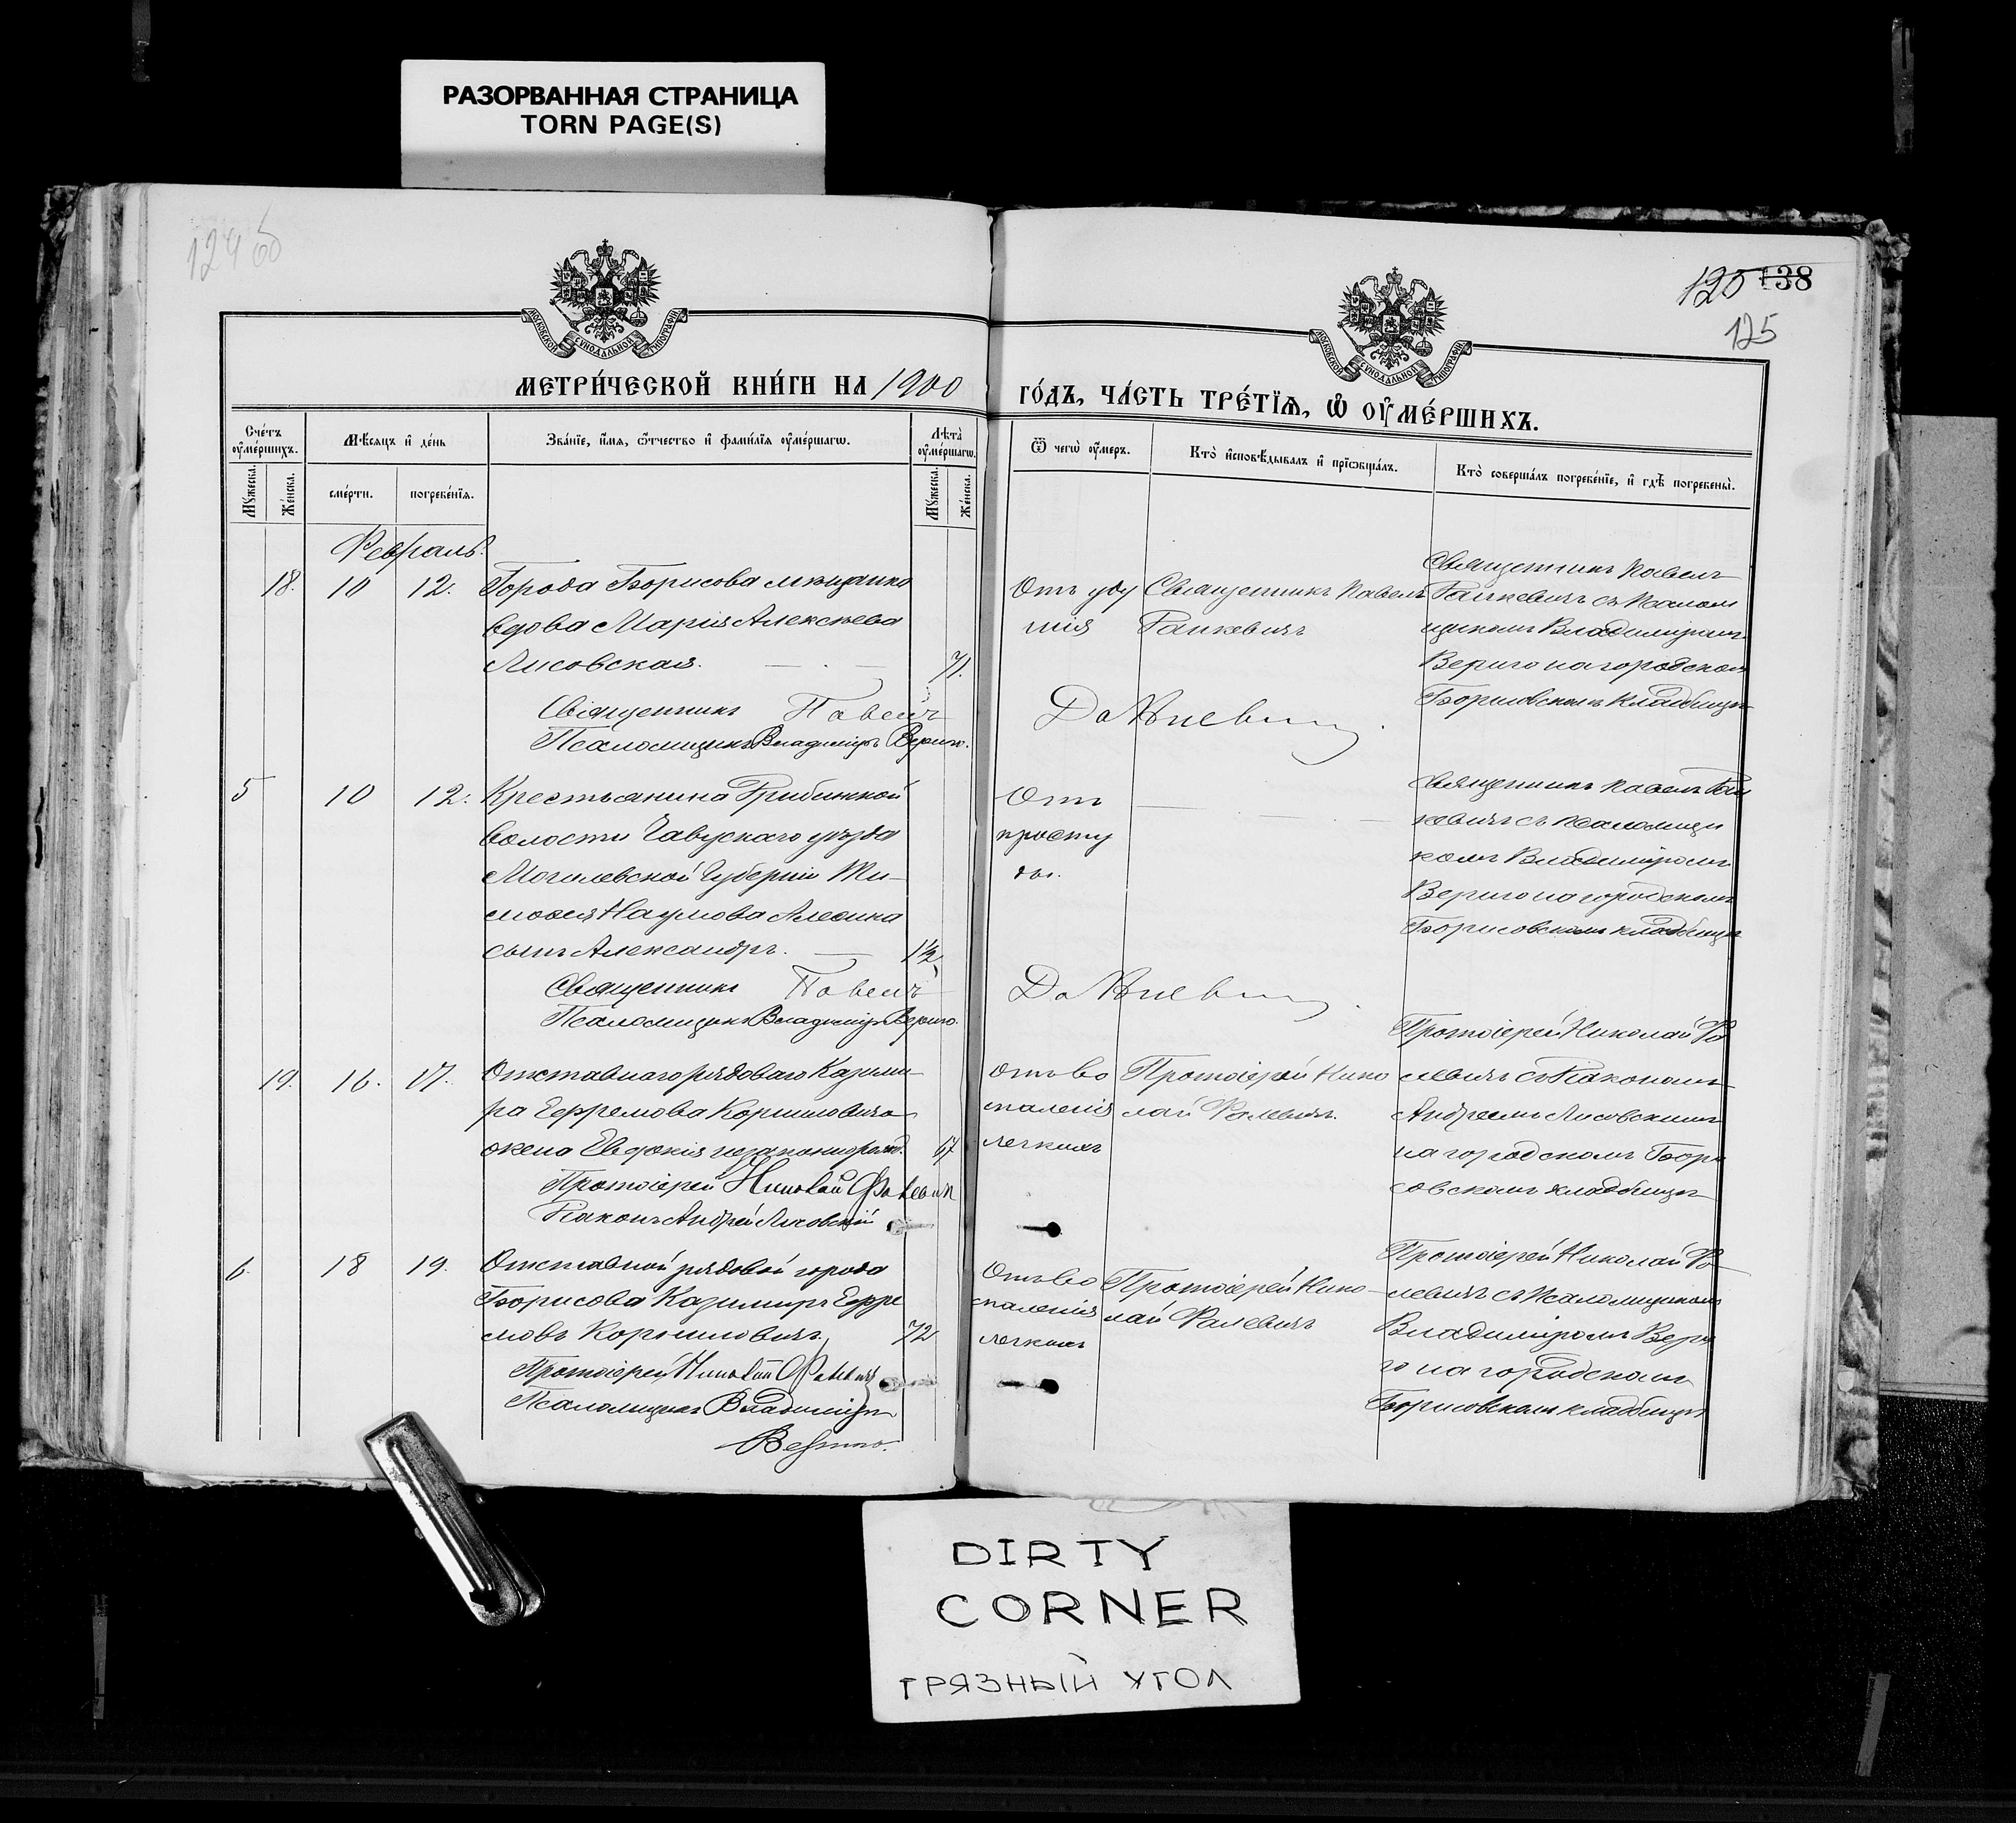 РАЗОРВАННАЯ СТРАНИЦА
TORN PAGE(S)
138
125
МОСКОВСКОЙ СѴНОДАЛЬНОЙ ТИПОГРАФІИ
МОСКОВСКОЙ СѴНОДАЛЬНОЙ ТИПОГРАФІИ
МЕТРИ́ЧЕСКОЙ КНИ́ГИ НА 1900
ГО́ДЪ, ЧА́СТЬ ТРЕ́ТЇѦ, Ѡ҆ ОУ҆МЕ́РШИХЪ.
Сче́тъ оу҆ме́ршихъ.
Мꙋжеска.
Же́нска.
Мѣ́сѧцъ и҆ де́нь
сме́рти.
погребе́нїѧ.
Зва́нїе, и҆́мѧ, ѻ҆́тчество и҆ фами́лїѧ оу҆ме́ршагѡ.
Лѣ́та̀ оу҆ме́ршагѡ.
Мꙋжеска.
Же́нска.
Ѿ чегѡ̀ оу҆́меръ.
Кто̀ и҆сповѣ́дывалъ и҆ прїѡбща́лъ.
Кто̀ соверша́лъ погребе́нїе, и҆ гдѣ̀ погребены̀.
Февраль.
18. 10 12. Города Борисова мѣщанка
вдова Марія Алексѣева
Лисовская. 71.
Священникъ Павелъ
Псаломщикъ Владиміръ Вериго.
Отъ уду
шія
Священникъ Павелъ
Священникъ Павелъ
съ псалом
щикомъ Владиміромъ
Вериго на городскомъ
Борисовскомъ кладбищѣ
5 10 12. Крестьянина
волости Чаусскаго уѣзда
Могилевской губерніи Ти-
мофея Наумова
сынъ Александръ. 1½
Священникъ Павелъ
Псаломщикъ Владиміръ Вериго.
Отъ
просту
ды.
Священникъ Павелъ
съ псаломщи
комъ Владиміромъ
Вериго на городскомъ
Борисовскомъ кладбищѣ
19. 16. 17. Отставнаго рядоваго Казими-
ра Ефремова
жена Евдокія незаконнорожд. 67
Протоіерей Николай Фалевичъ
Діаконъ Андрей Лисовскій
Отъ во
спаленія
легкихъ
Протоіерей Нико
лай Фалевичъ.
Протоіерей Николай Фа
левичъ съ Діакономъ
Андреемъ Лисовскимъ
на городскомъ Бори
совскомъ кладбищѣ
6. 18 19. Отставной рядовой города
Борисова Казимиръ Ефре
мовъ 72
Протоіерей Николай Фалевичъ
Псаломщикъ Владиміръ
Вериго.
Отъ во
спаленія
легкихъ
Протоіерей Нико-
лай Фалевичъ
Протоіерей Николай Фа-
левичъ съ псаломщикомъ
Владиміромъ Вери
го на городскомъ
Борисовскомъ кладбищѣ
DIRTY
CORNER
ГРЯЗНЫЙ УГОЛ